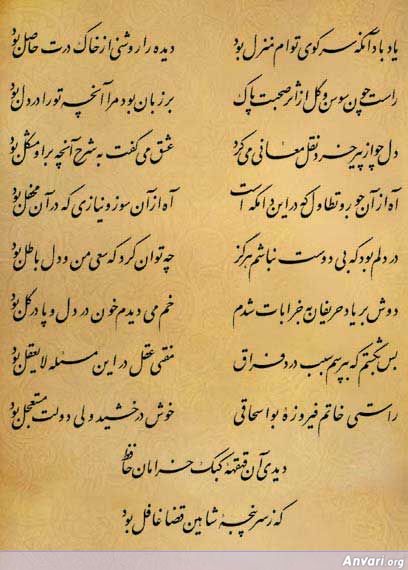 یاد باد آنکه سر کوی توام منزل بود دیده را روشنی از خاک درت حاصل بود
راست چون سوسن و گل از اثر صحبت پاک بر زبان بود مرا آنچه تو را در دل بود
دل چو از پیر خرد نقل معانی می کرد عشق می گفت به شرح آنچه بر او مشکل بود
آه از آن جور و تطاول که در این دامگه است آه از آن سوز و نیازی که در آن محفل بود
در دلم بود که بی دوست نباشم هرگز چه توان کرد که سعی من و دل باطل بود
دوش بر یاد حریفان به خرابات شدم خم می دیدم خون در دل و پا در گل بود
بس بگشتم که بپرسم سبب درد فراق مفتی عقل در این مسئله لایعقل بود
راستی خاتم فیروزهٔ بواسحاقی خوش درخشید ولی دولت مستعجل بود
دیدی آن قهقههٔ کبک خرامان حافظ
که ز سرپنجهٔ شاهین قضا غافل بود
Anvari.org